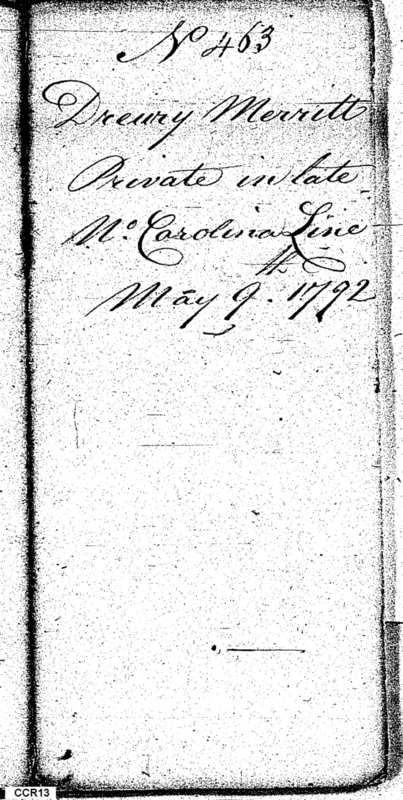 No 463
Dreury Merritt
Private in late
No. Carolina Line
May 9. 1792
CCR13